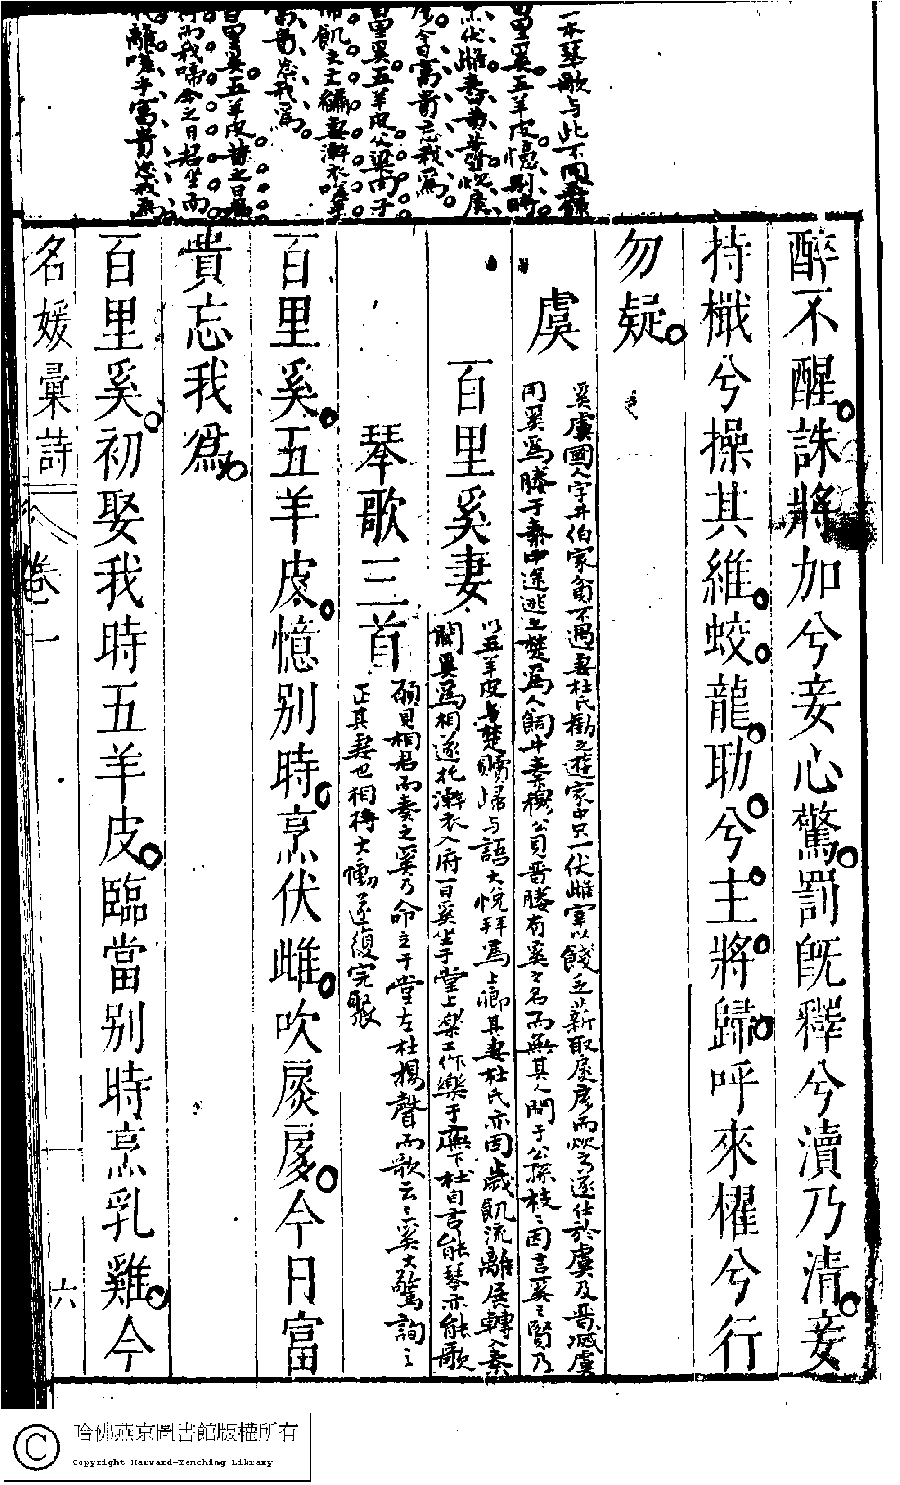 一本琴歌与此不同
百里奚五羊皮憶別時
烹伏雌舂黃藜炊扊
扅今日富貴忘我爲
百里奚五羊皮父梁肉子
啼飢夫文繡妻澣衣嗟乎
富貴忘我爲
百里奚五羊皮昔之日君
行而我啼今之日君坐而
我離嗟乎富貴忘我爲
醉不醒誅將加兮妾心驚罰旣釋兮瀆乃清妾
持檝兮操其維蛟龍助兮主將歸呼來櫂兮行
勿疑
虞
奚虞國人字井伯家貧不遇妻杜氏勸之遊家中只一伏雌宰以餞之薪取扊扅而炊之遂仕於虞及晋滅虞
用奚爲媵于秦中途逃之楚爲人飼牛秦穆公見晋媵有奚之名而無其人問于公孫枝枝因言奚之賢乃
百里奚妻
以五羊皮於楚贖歸与語大悅拜爲上卿其妻杜氏亦因歲飢流離展轉入秦
聞奚爲相遂托澣衣入府一日奚坐于堂上樂工作樂于廡下杜自言能琴亦能歌
琴歌三首
願見相君而奏之奚乃命立于堂左杜揚聲而歌云云奚大驚詢之
正其妻也相持大慟遂復完聚
百里奚五羊皮憶别時烹伏雌吹扊扅今日富
貴忘我爲
百里奚初娶我時五羊皮臨當别時烹乳雞今
名媛彙詩
卷一
六
哈佛燕京圖書館版權所有
Copyright Harvard-Yenching Library